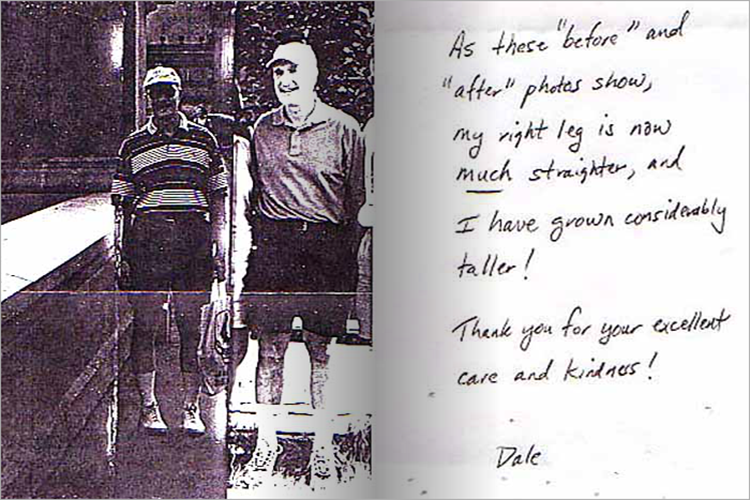 As these "before" and
"after" photos show,
my right leg is now
much straighter, and
I have grown considerably
taller!
Thank you for your excellent
care and kindness!
Dale